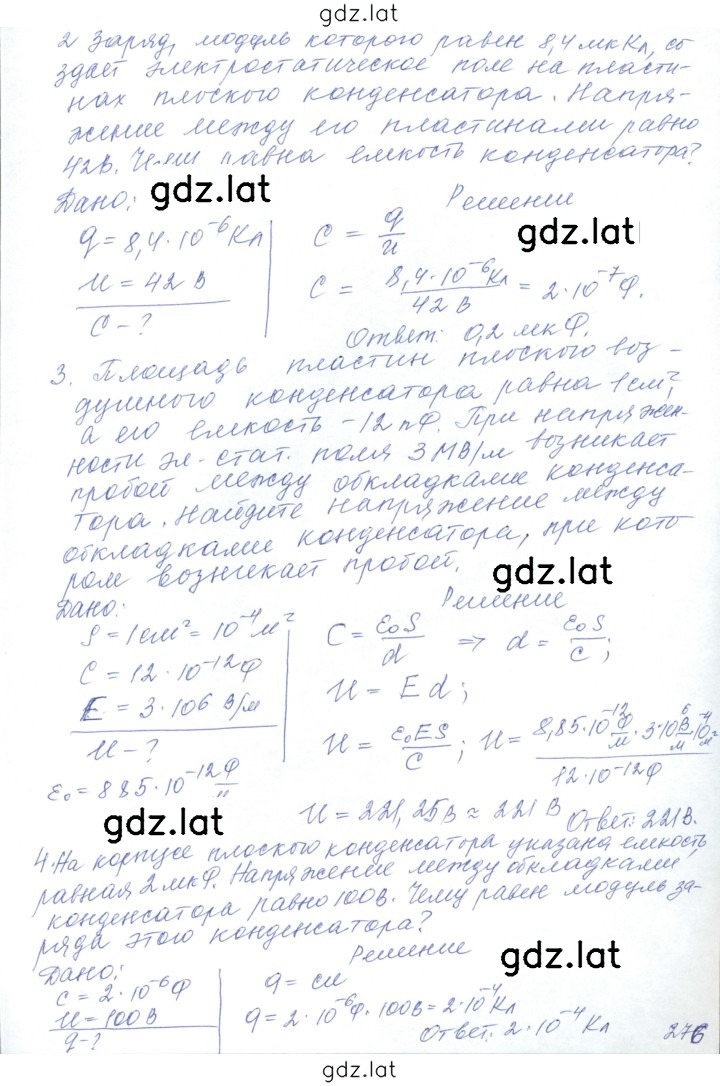 gdz.lat
2 Заряд, модуль которого равен 8,4 мкКл, со
здает электростатическое поле на пласти-
нах плоского конденсатора. Напря-
жение между его пластинами равно
42В. Чему равна емкость конденсатора?
Дано: gdz.lat Решении
q = 8,4·10⁻⁶Кл C = q/u gdz.lat
u = 42 В C = 8,4·10⁻⁶Кл/42 В = 2·10⁻⁷Ф.
C – ?
Ответ: 0,2 мкФ.
3. Площадь пластин плоского воз-
душного конденсатора равна 1см²,
а его емкость – 12 пФ. При напряжен-
ности эл-стат. поля 3 МВ/м возникает
пробой между обкладками конденса-
тора. Найдите напряжение между
обкладками конденсатора, при кото
ром возникает пробой. gdz.lat
Дано: Решение
S = 1см² = 10⁻⁴м² C = ε₀S/d ⇒ d = ε₀S/C;
C = 12·10⁻¹²Ф
E = 3·106 В/м u = Ed;
u – ? u = ε₀ES/C; u = 8,85·10⁻¹²Ф/м·3·10⁶В/м·10⁻⁴м²/12·10⁻¹²Ф
ε₀ = 885·10⁻¹²Ф/м
gdz.lat u = 221,25В ≈ 221 В Ответ: 221В.
4. На корпусе плоского конденсатора указана емкость
равная 2 мкФ. Напряжение между обкладками
конденсатора равно 100В. Чему равен модуль за-
ряда этого конденсатора?
Дано: Решение gdz.lat
C = 2·10⁻⁶Ф q = cu
u = 100 В q = 2·10⁻⁶Ф·100В = 2·10⁻⁴Кл
q – ? Ответ: 2·10⁻⁴Кл 276
gdz.lat